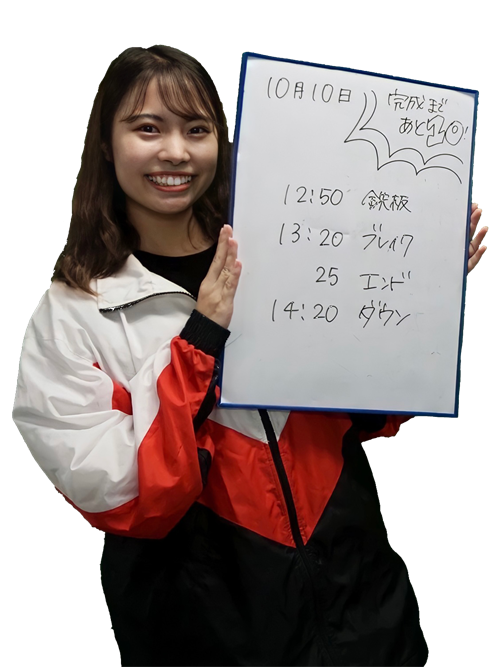 10月10日
完成まで
あと
12:50 鉄板
13:20 ブレイク
25 エンド
14:20 ダウン